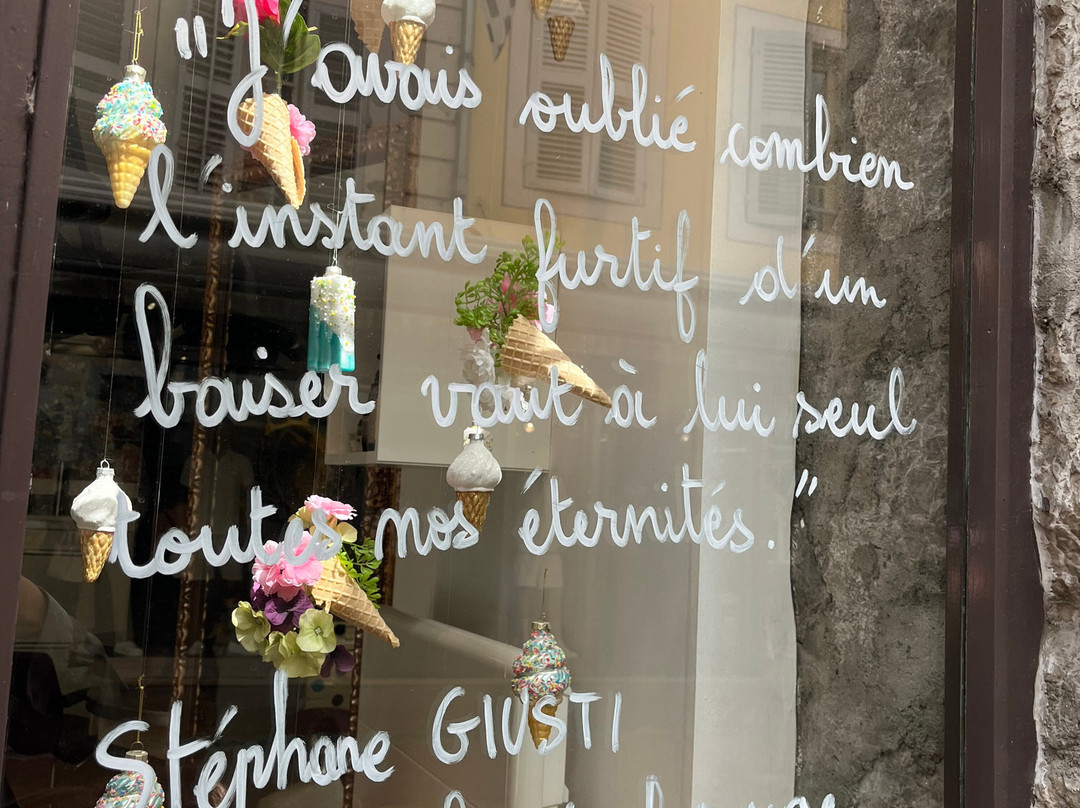 "J'avais oublié combien
l'instant furtif d'un
baiser vaut à lui seul
toutes nos éternités."
Stéphane GIUSTI